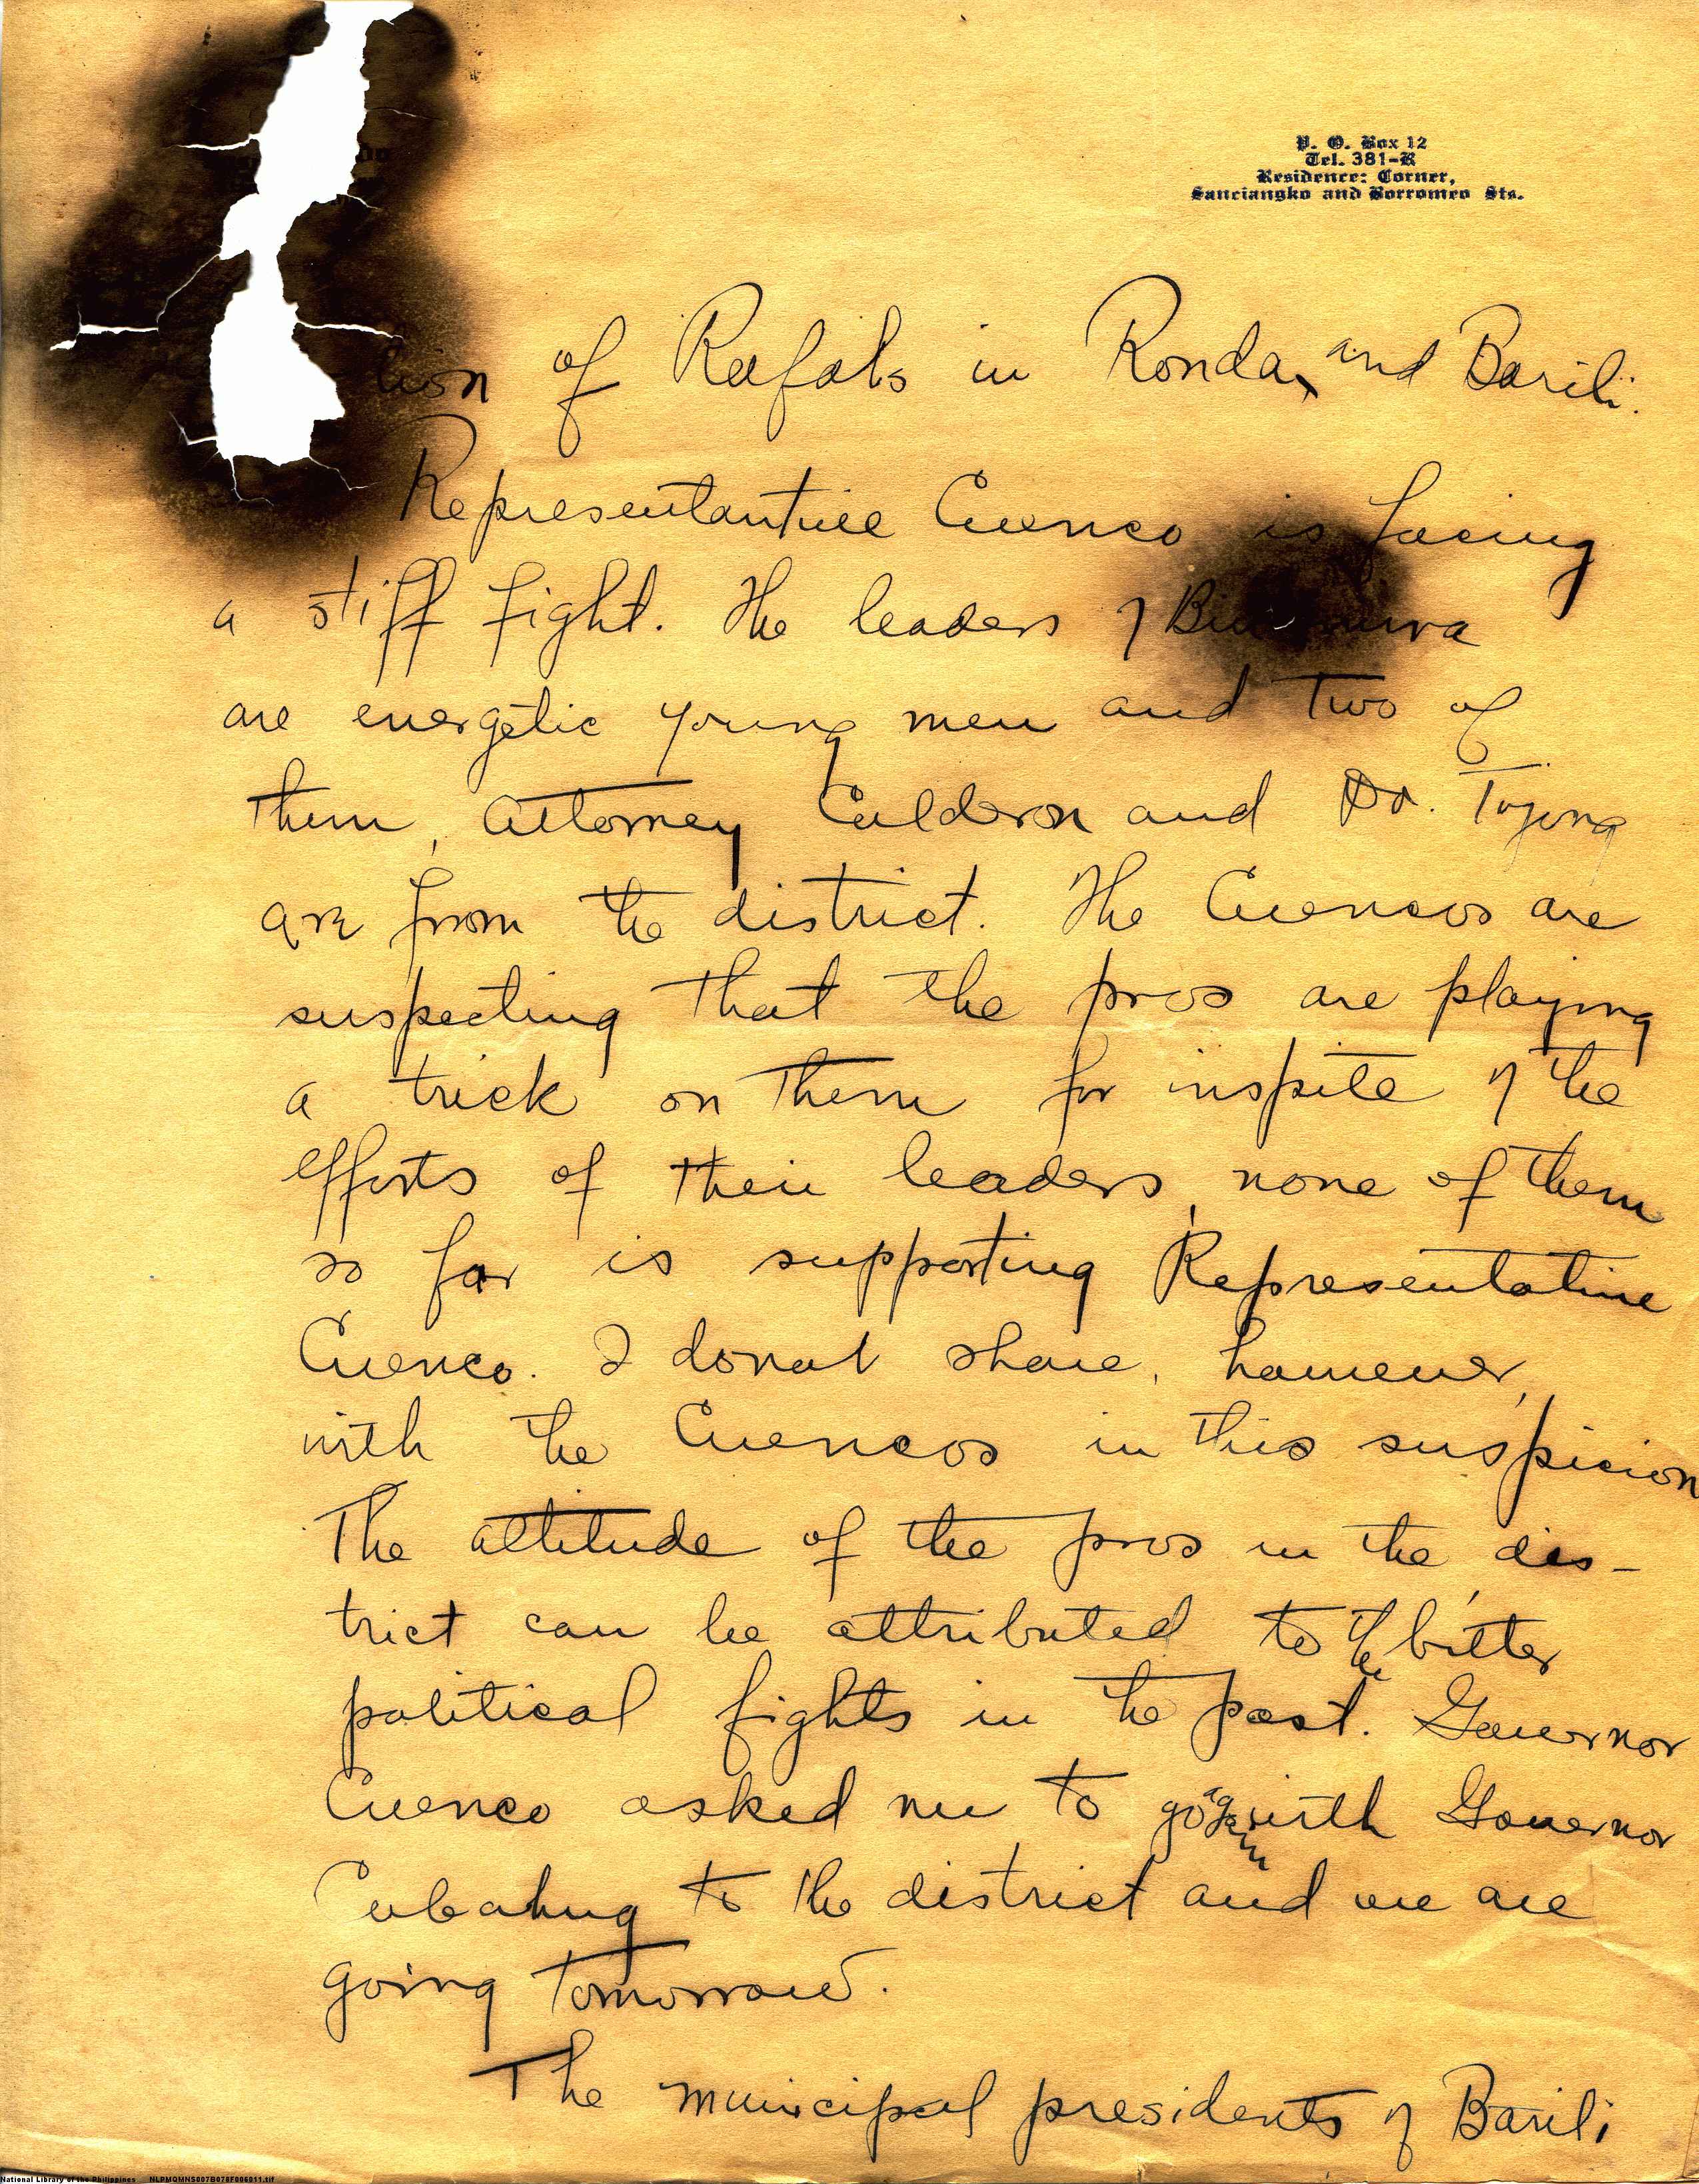 P. O. Box 12
Tel. 381-R
Residence: Corner,
Sanciangko and Borromeo Sts.
tion of Rafols in Ronda, and Barili.
Representantive Cuenco is facing
a stiff fight. The leaders of
are energetic young men and two of
them, Attorney Calderon and Dr.
are from the district. The Cuencos are
suspecting that the pros are playing
a trick on them for inspite of the
efforts of their leaders, none of them
so far is supporting Representative
Cuenco. I donot share, however,
with the Cuencos in this suspicion
The attitude of the pros in the dis-
trict can be attributed to the bitter
political fights in the past. Governor
Cuenco asked me to go again with Governor
Cabahug to the district and we are
going tomorrow.
The municipal presidents of Barili
National Library of the Philippines NLPMQMNS007B078F006011.tif